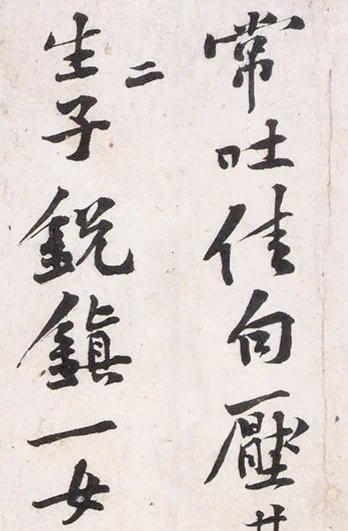 常吐佳句壓
生二子銳鎮一女